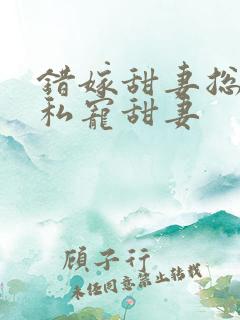 错嫁甜妻总
私宠甜妻
顾子行
未经同意禁止转载